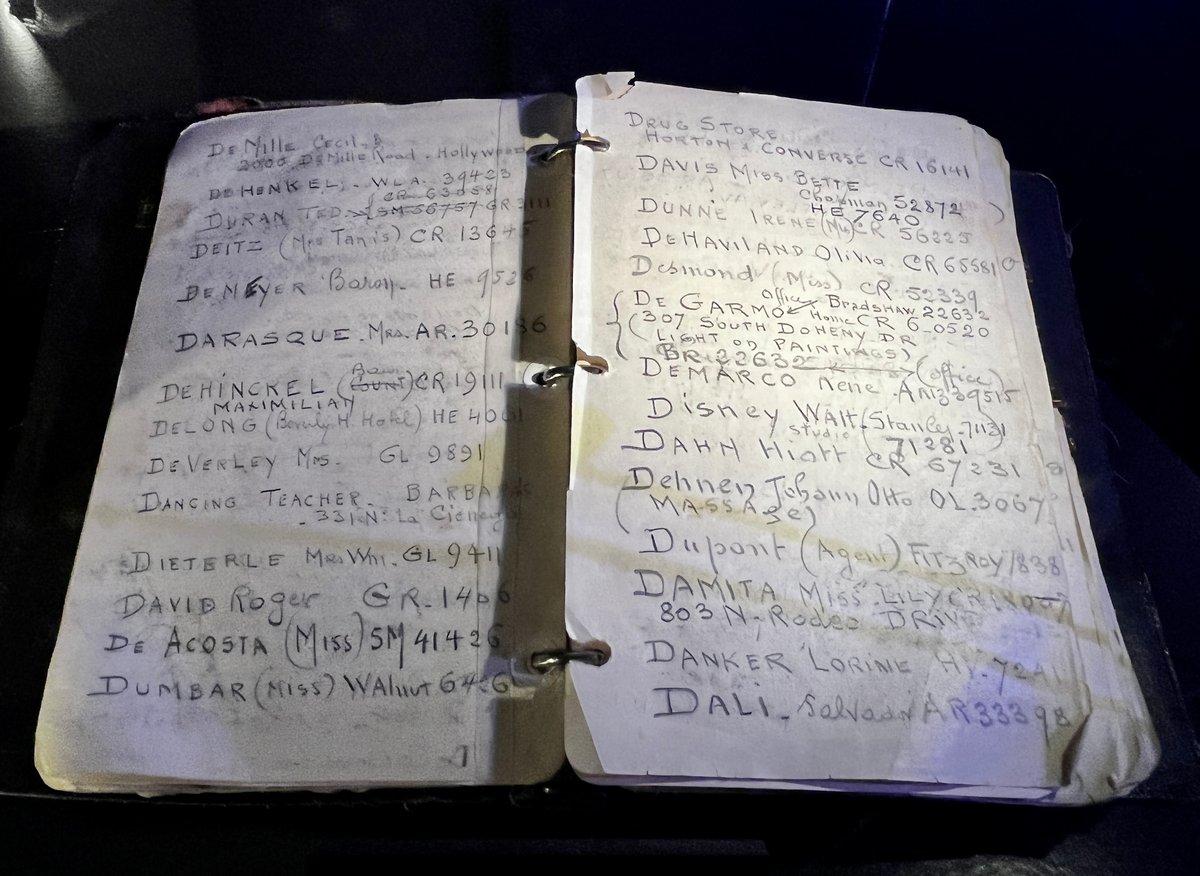 DeMille Cecil. B
2000 DeMille Road. Hollywood
DEHENKEL. WLA. 39423
CR 63058
DURAN TED. SM 56757 GR 3111
DEITZ (Mrs Tanis) CR 13645
DEMEYER Baron. HE 9526
DARASQUE. Mrs. AR. 30186
DEHINCKEL (Baron COUNT) CR 19111
MAXIMILIAN
DELONG (Beverly H. Hotel) HE 4001
DEVERLEY Mrs. GL 9891
DANCING TEACHER. BARBARA
331 N. La Cienega
DIETERLE Mrs Wm. GL 9411
DAVID Roger GR. 1406
DE ACOSTA (Miss) SM 41426
DUMBAR (Miss) WAlnut 6426
DRUG STORE
HORTON & CONVERSE CR 16141
DAVIS Miss BETTE
Chapman 52872
HE 7640
DUNNE IRENE (Mrs) CR 56225
DEHAVILAND Olivia CR 65581
Desmond (Miss) CR. 52339
DE GARMO Office Bradshaw 22632
Home CR 6-0520
(307 SOUTH DOHENY DR
LIGHT ON PAINTINGS)
BR. 22632 (office)
DEMARCO Rene AR 339515
DISNEY WALT (Stanley. 71121)
Studio 71281
DAHN Hiatt CR 67231
Dehnen Johann Otto OL. 3067
(MASSAGE)
Dupont (Agent) FITZROY 1838
DAMITA Miss LILY CR
803 N. Rodeo DRIVE
DANKER LORINE HY. 7241
DALI. Salvador AR 33398